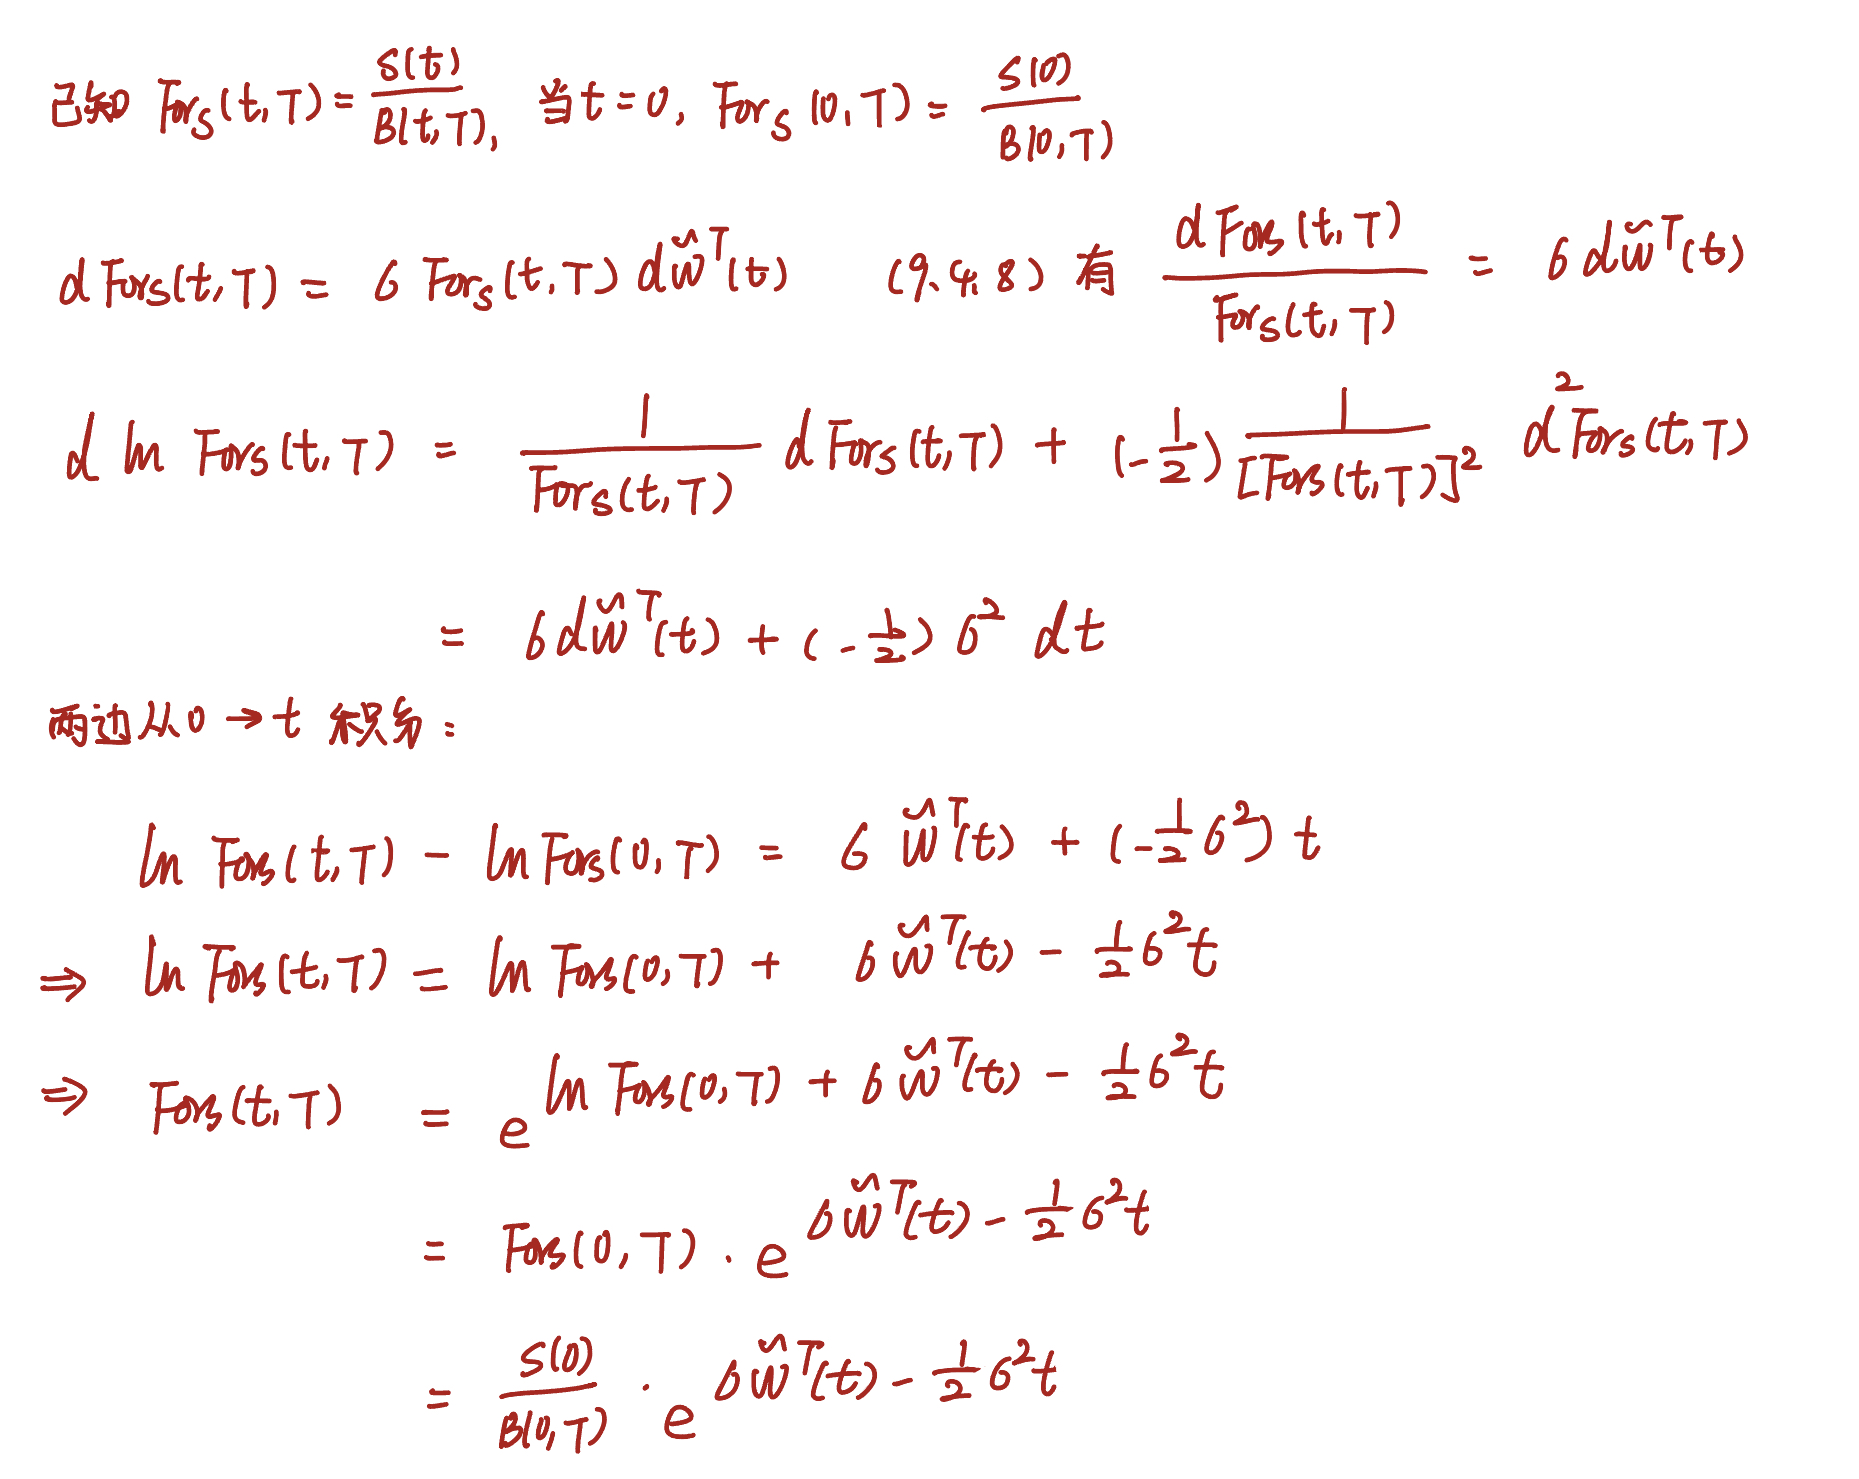 已知 For_S(t,T) = S(t)/B(t,T), 当t=0, For_S(0,T) = S(0)/B(0,T)
dFor_S(t,T) = σ For_S(t,T) dW̃^T(t) (9.4.8) 有 dFor_S(t,T)/For_S(t,T) = σ dW̃^T(t)
d ln For_S(t,T) = 1/For_S(t,T) dFor_S(t,T) + (-1/2) 1/[For_S(t,T)]^2 d^2 For_S(t,T)
= σdW̃^T(t) + (-1/2) σ^2 dt
两边从0→t 积分:
ln For_S(t,T) - ln For_S(0,T) = σ W̃^T(t) + (-1/2 σ^2) t
⇒ ln For_S(t,T) = ln For_S(0,T) + σ W̃^T(t) - 1/2 σ^2 t
⇒ For_S(t,T) = e^{ln For_S(0,T) + σ W̃^T(t) - 1/2 σ^2 t}
= For_S(0,T) · e^{σ W̃^T(t) - 1/2 σ^2 t}
= S(0)/B(0,T) · e^{σ W̃^T(t) - 1/2 σ^2 t}